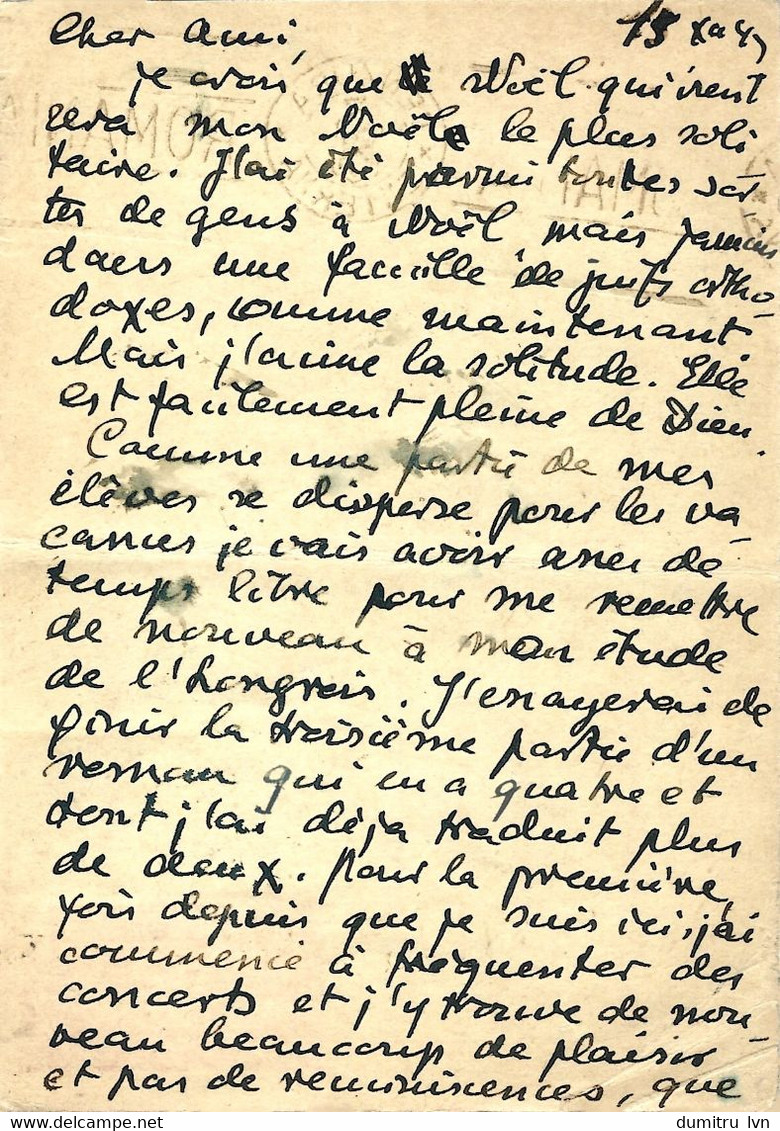 Cher Ami,
15 X
je crois que Noël qui vient
sera mon Noël le plus soli
taire. J'ai été parmi toutes sor
tes de gens à Noël, mais jamais
dans une famille de juifs ortho-
doxes, comme maintenant.
Mais j'aime la solitude. Elle
est facilement pleine de Dieu.
Comme une partie de mes
élèves se disperse pour les va-
cances je vais avoir assez de
temps libre pour me remettre
de nouveau à mon étude
de l'hongrois. J'essayerai de
finir la troisième partie d'un
roman qui en a quatre et
dont j'ai déja traduit plus
de deux. Pour la première
fois depuis que je suis ici, j'ai
commencé à fréquenter des
concerts et j'y trouve de nou-
veau beaucoup de plaisir
et pas de reminiscences, que
dumitru lvn